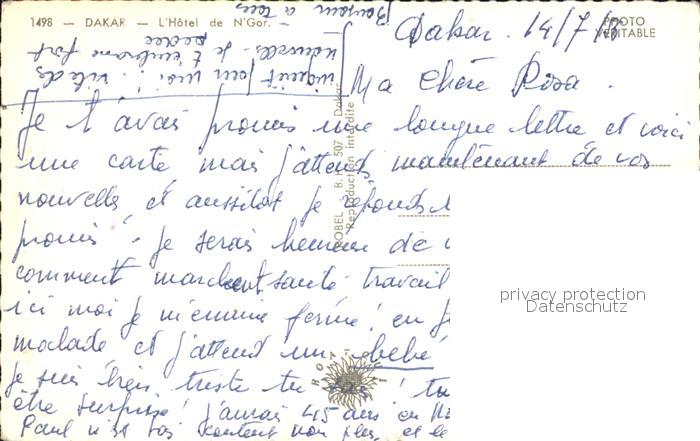 1498 — DAKAR — L'Hôtel de N'Gor.
PHOTO
VERITABLE
Dakar. 14/7/
Ma Chère Rosa.
Je t'avais promis une longue lettre et voici
une carte mais j'attends maintenant de vos
nouvelles et aussitôt je réponds
promis! Je serais heureuse de
comment marchent santé travail
ici moi je m'ennuie ferme! en
malade et j'attend un bebé
je suis très triste tu sais! tu
être surprise! j'aurai 45 ans en
Paul n'est pas content non plus, et le
inquiet pour moi! vite des
nouvelles. Je t'embrasse fort
Bonjour à tous
HOBEL - B.P. 507 - Dakar
Reproduction interdite
privacy protection
Datenschutz